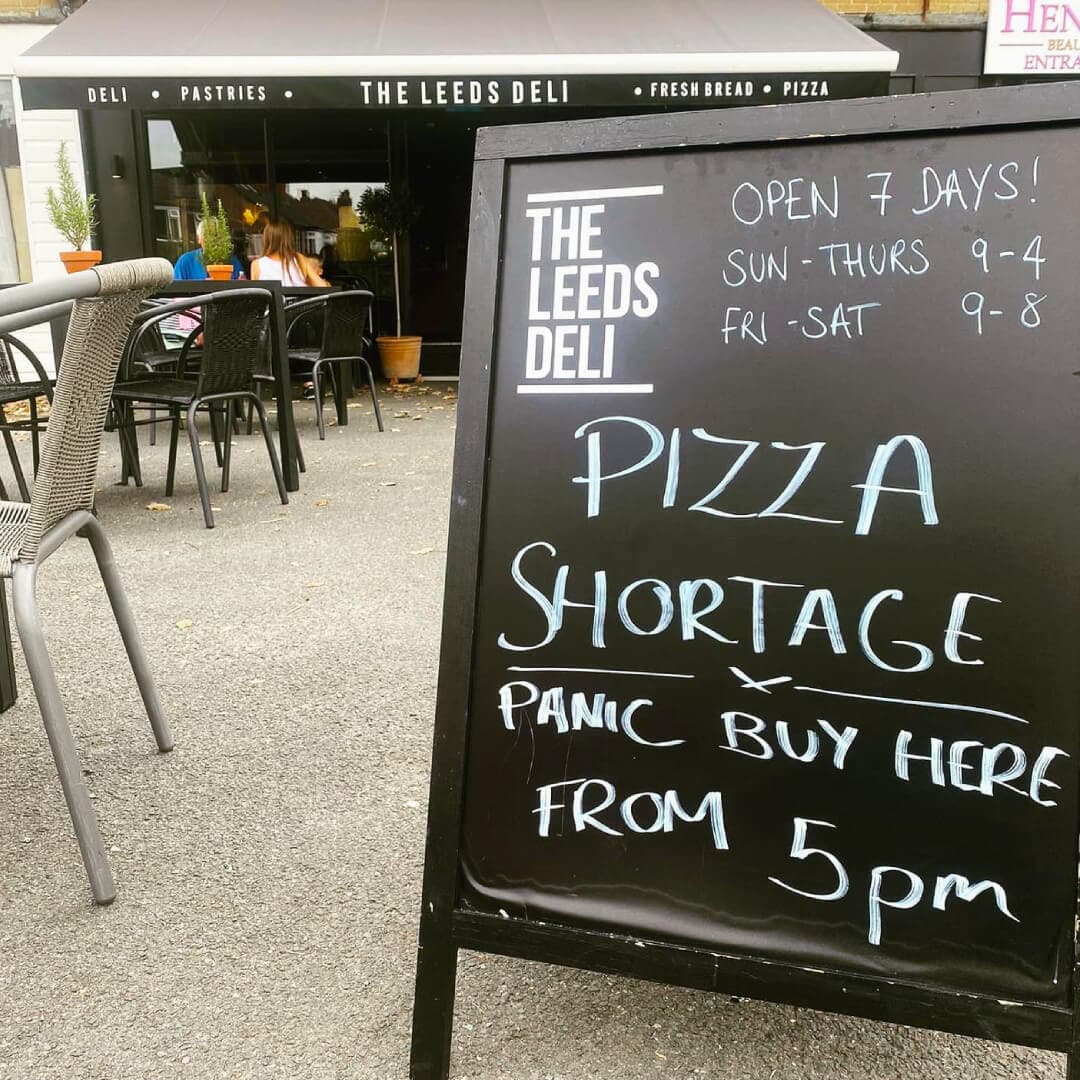 DELI • PASTRIES • THE LEEDS DELI • FRESH BREAD • PIZZA
HEN
BEAU
ENTRA
THE
LEEDS
DELI
OPEN 7 DAYS!
SUN - THURS 9-4
FRI - SAT 9-8
PIZZA
SHORTAGE
PANIC BUY HERE
FROM 5pm